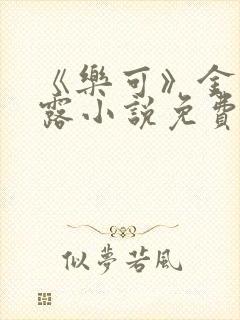 《樂可》金
露小說免費
似夢若風